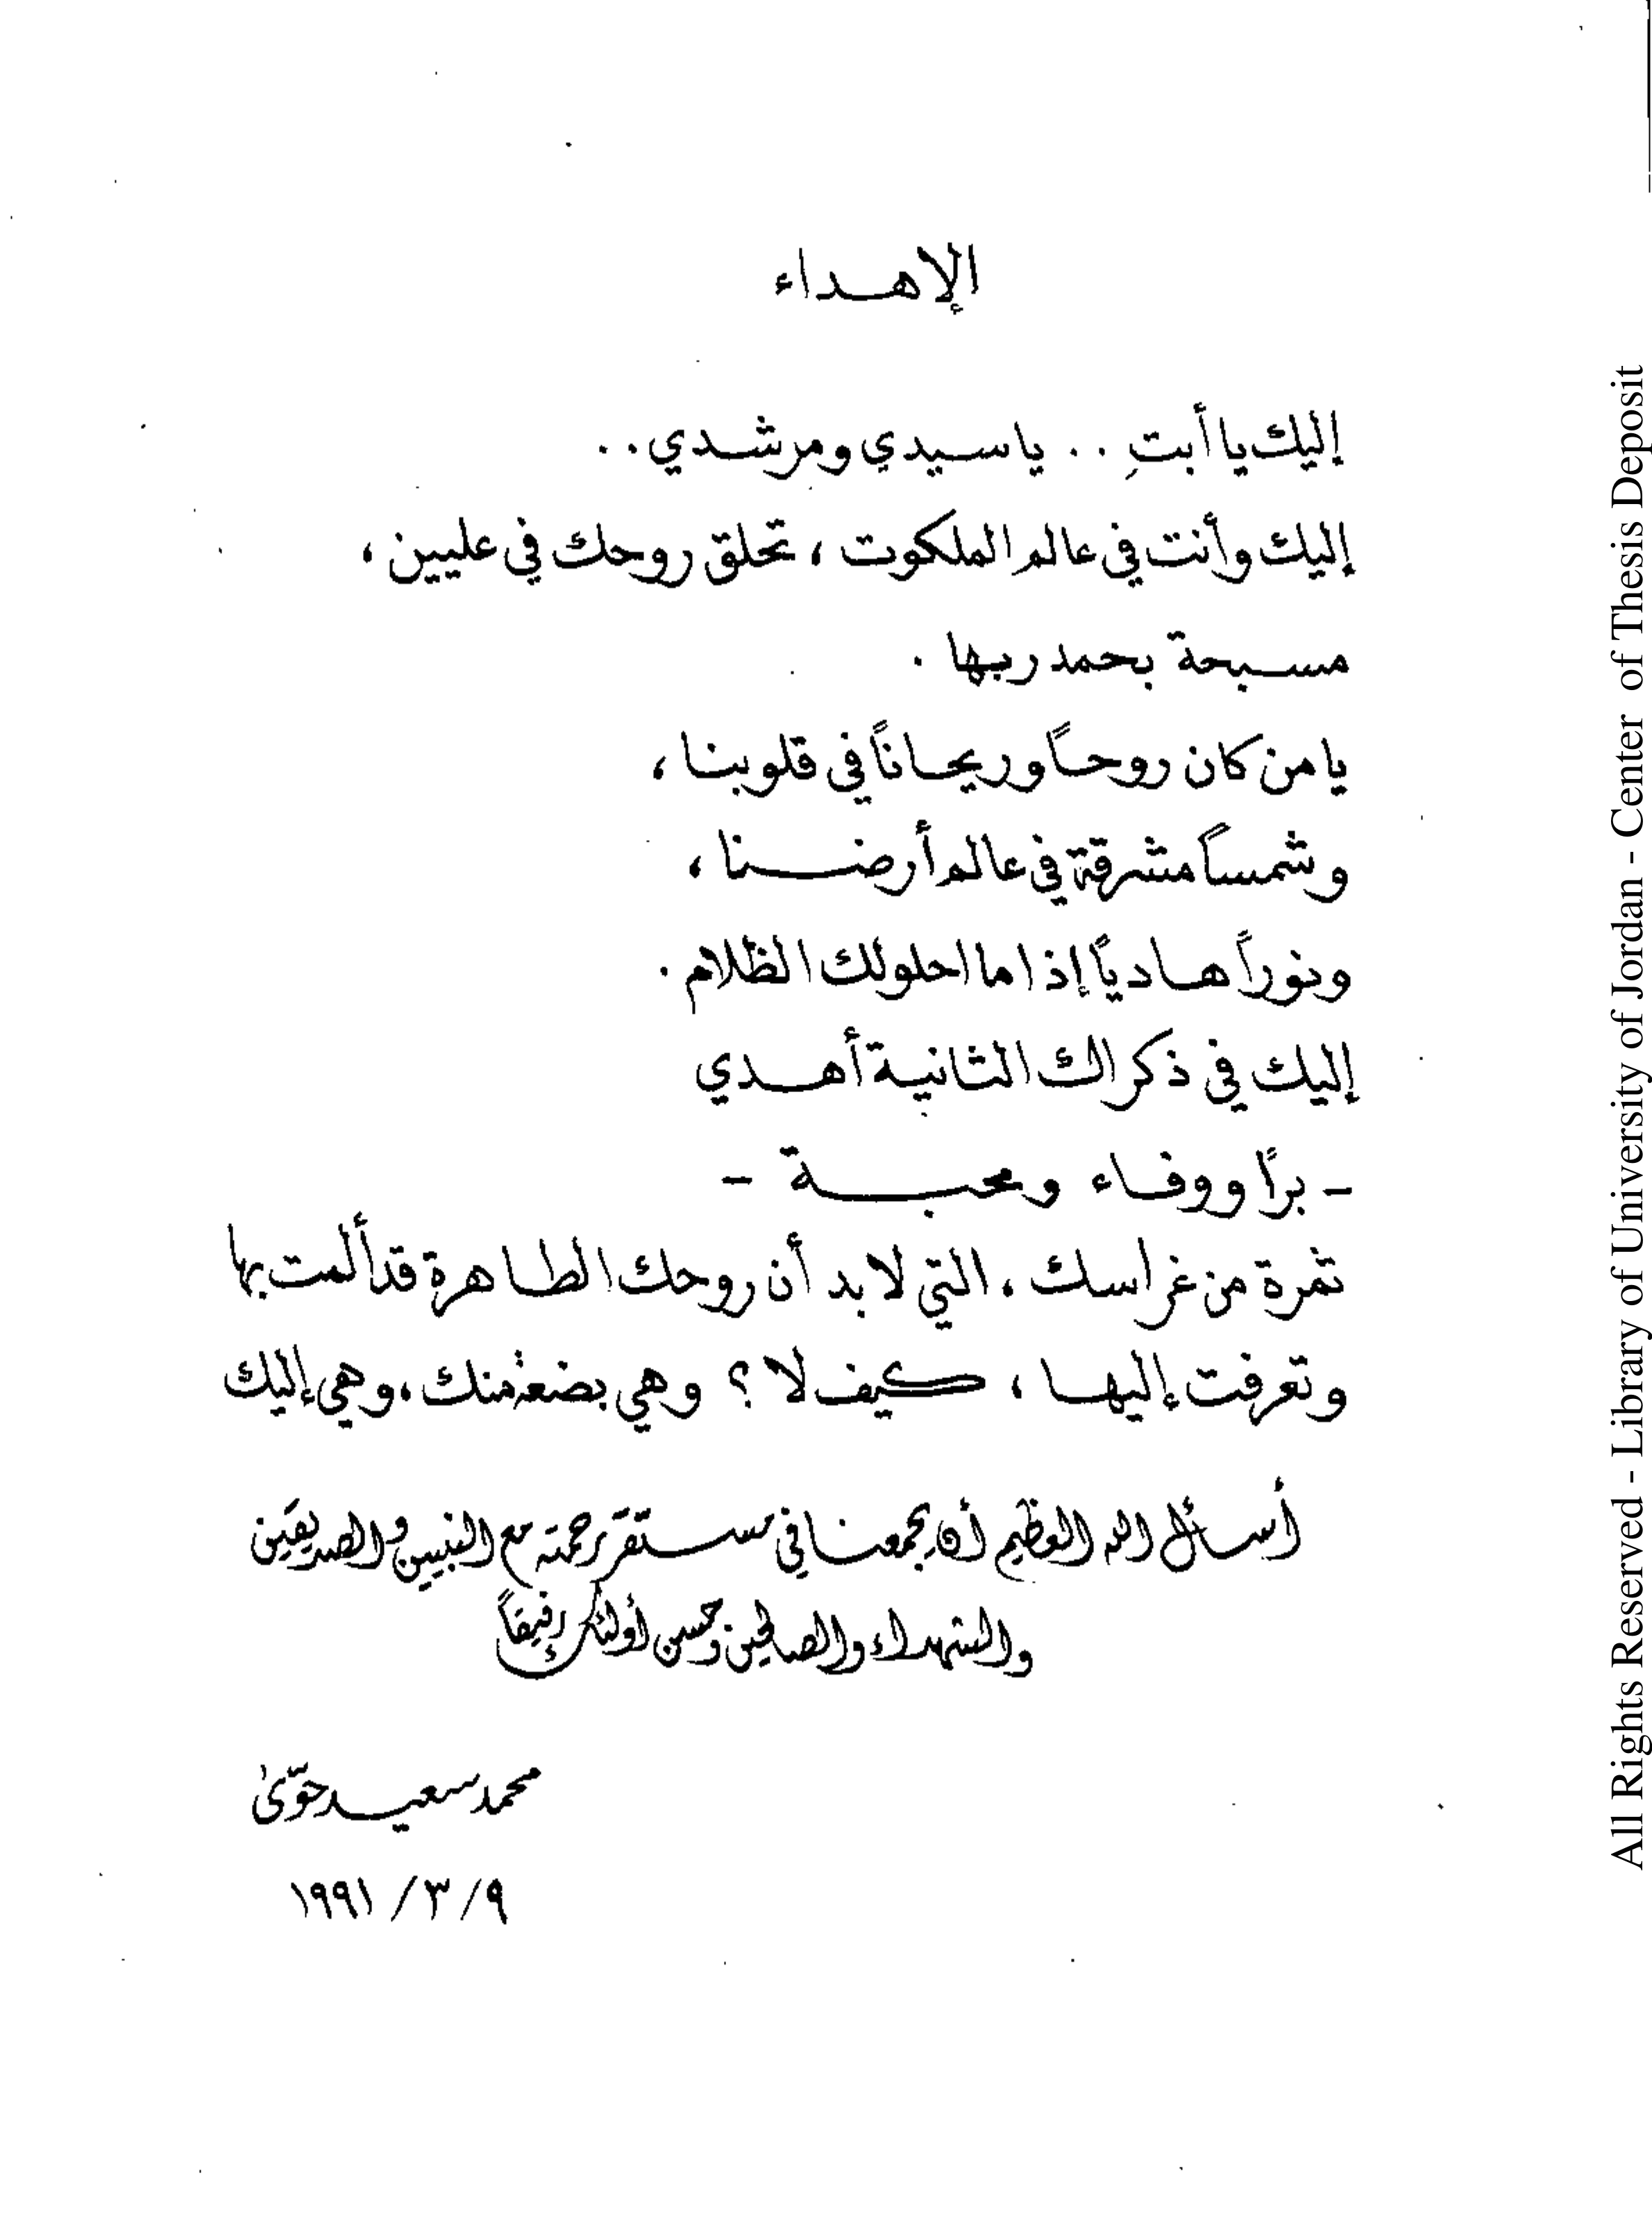 الإهداء
إليك يا أبتِ .. يا سيدي ومرشدي ..
إليك وأنت في عالم الملكوت ، تحلق روحك في عليين ،
مسبحة بحمد ربها .
يا من كان روحاً وريحاناً في قلوبنا ،
وشمساً مشرقة في عالم أرضنا ،
ونوراً هادياً إذا ما احلولك الظلام .
إليك في ذكراك الثانية أهدي
- براً ووفاء ومحبة -
ثمرة من غراسك ، التي لا بد أن روحك الطاهرة قد ألمت بها
وتعرفت إليها ، كيف لا ؟ وهي بضعة منك ، وهي إليك
أسأل الله العظيم أن يجمعنا في مستقر رحمته مع النبيين والصديقين
والشهداء والصالحين وحسن أولئك رفيقاً
محمد سعيد حوّى
٩ / ٣ / ١٩٩١
All Rights Reserved - Library of University of Jordan - Center of Thesis Deposit